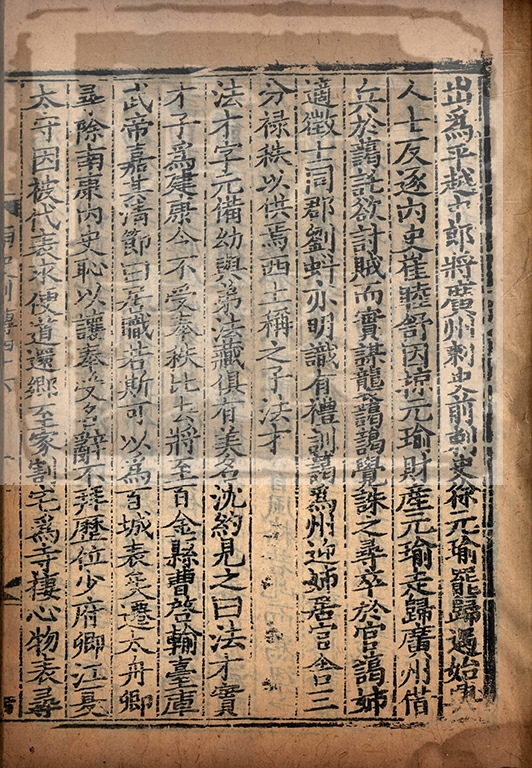 出爲平越中郎將廣州刺史前刺史徐元瑜罷歸遇始興
人士反逐内史崔睦舒因掠元瑜財産元瑜走歸廣州借
兵於藹託欲討賊而實謀襲藹藹覺誅之尋卒於官藹姉
適徵士同郡劉虯亦明識有禮訓藹爲州迎姉居官舍三
分禄秩以供焉西土稱之子法才
法才字元備幼與弟法藏俱有美名沈約見之曰法才實
才子爲建康令不受奉秩比去將至百金縣曹啓輸臺庫
武帝嘉其清節曰居職若斯可以爲百城表矣遷太舟卿
尋除南康内史恥以讓奉受名辭不拜歴位少府卿江夏
太守因被代表求便道還鄉至家割宅爲寺棲心物表尋